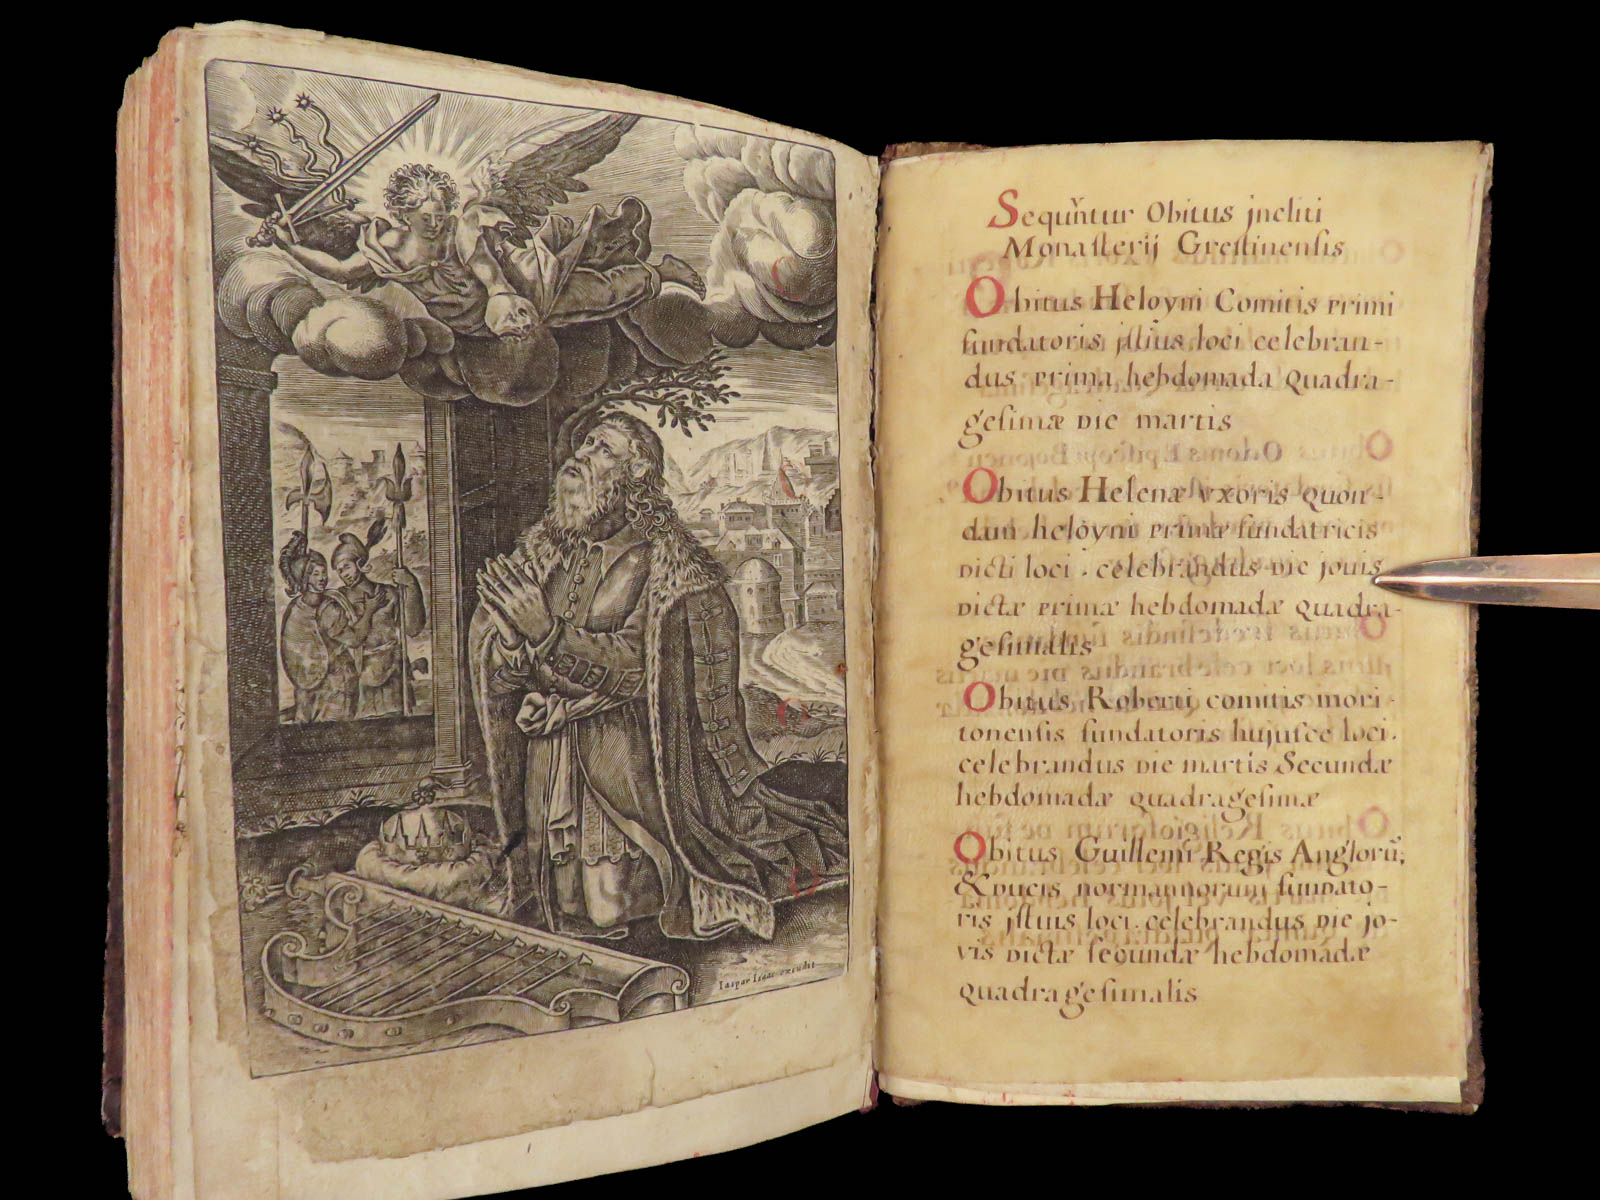 Iaspar Isaac excudit
Sequñtur Obitus jncliti
Monasterij Grestinensis
Obitus Heloyni Comitis primi
fundatoris jstius loci celebran-
dus prima hebdomada Quadra-
gesimæ die martis
Obitus Helenæ vxoris quon-
dam heloyni primæ fundatricis
dicti loci. celebrandus die jouis
dictæ primæ hebdomadæ quadra-
gesimalis
Obitus Roberti comitis mori-
tonensis fundatoris hujusce loci.
celebrandus die martis Secundæ
hebdomadæ quadragesimæ
Obitus Guillemi Regis Anglorũ,
& ducis normannorum fundato-
ris jstius loci. celebrandus die jo-
vis dictæ secundæ hebdomadæ
quadragesimalis